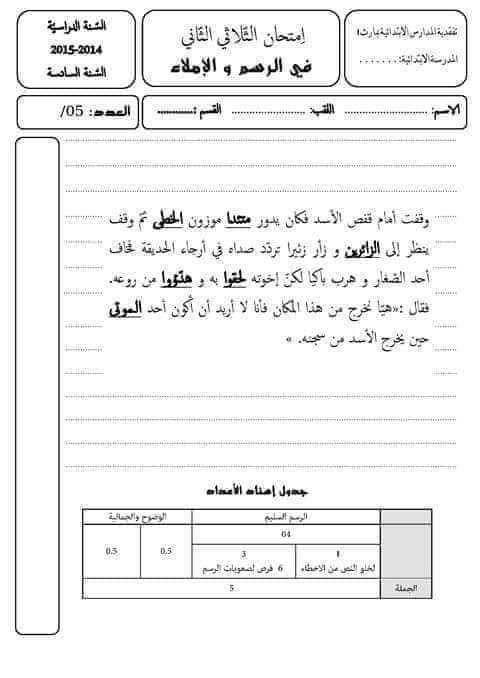 تفقدية المدارس الإبتدائية بمارث1
المدرسة الابتدائية: . . . . . . .
إمتحان الثلاثي الثاني
في الرسم و الإملاء
السنة الدراسية
2015-2014
السنة السادسة
الاسم: ............................ اللقب: ........................ القسم :............
العدد: 05/
وقفت أمام قفص الأسد فكان يدور متئدا موزون الخطى ثمّ وقف
ينظر إلى الزائرين و زأر زئيرا تردّد صداه في أرجاء الحديقة فخاف
أحد الصّغار و هرب باكيا لكنّ إخوته لحقوا به و هدّؤوا من روعه.
فقال :«هيّا نخرج من هذا المكان فأنا لا أريد أن أكون أحد الموتى
حين يخرج الأسد من سجنه. »
جدول إسناد الأعداد
الرسم السليم الوضوح والجمالية
04
1 3 0.5 0.5
لخلو النص من الاخطاء 6 فرص لصعوبات الرسم
الجملة 5